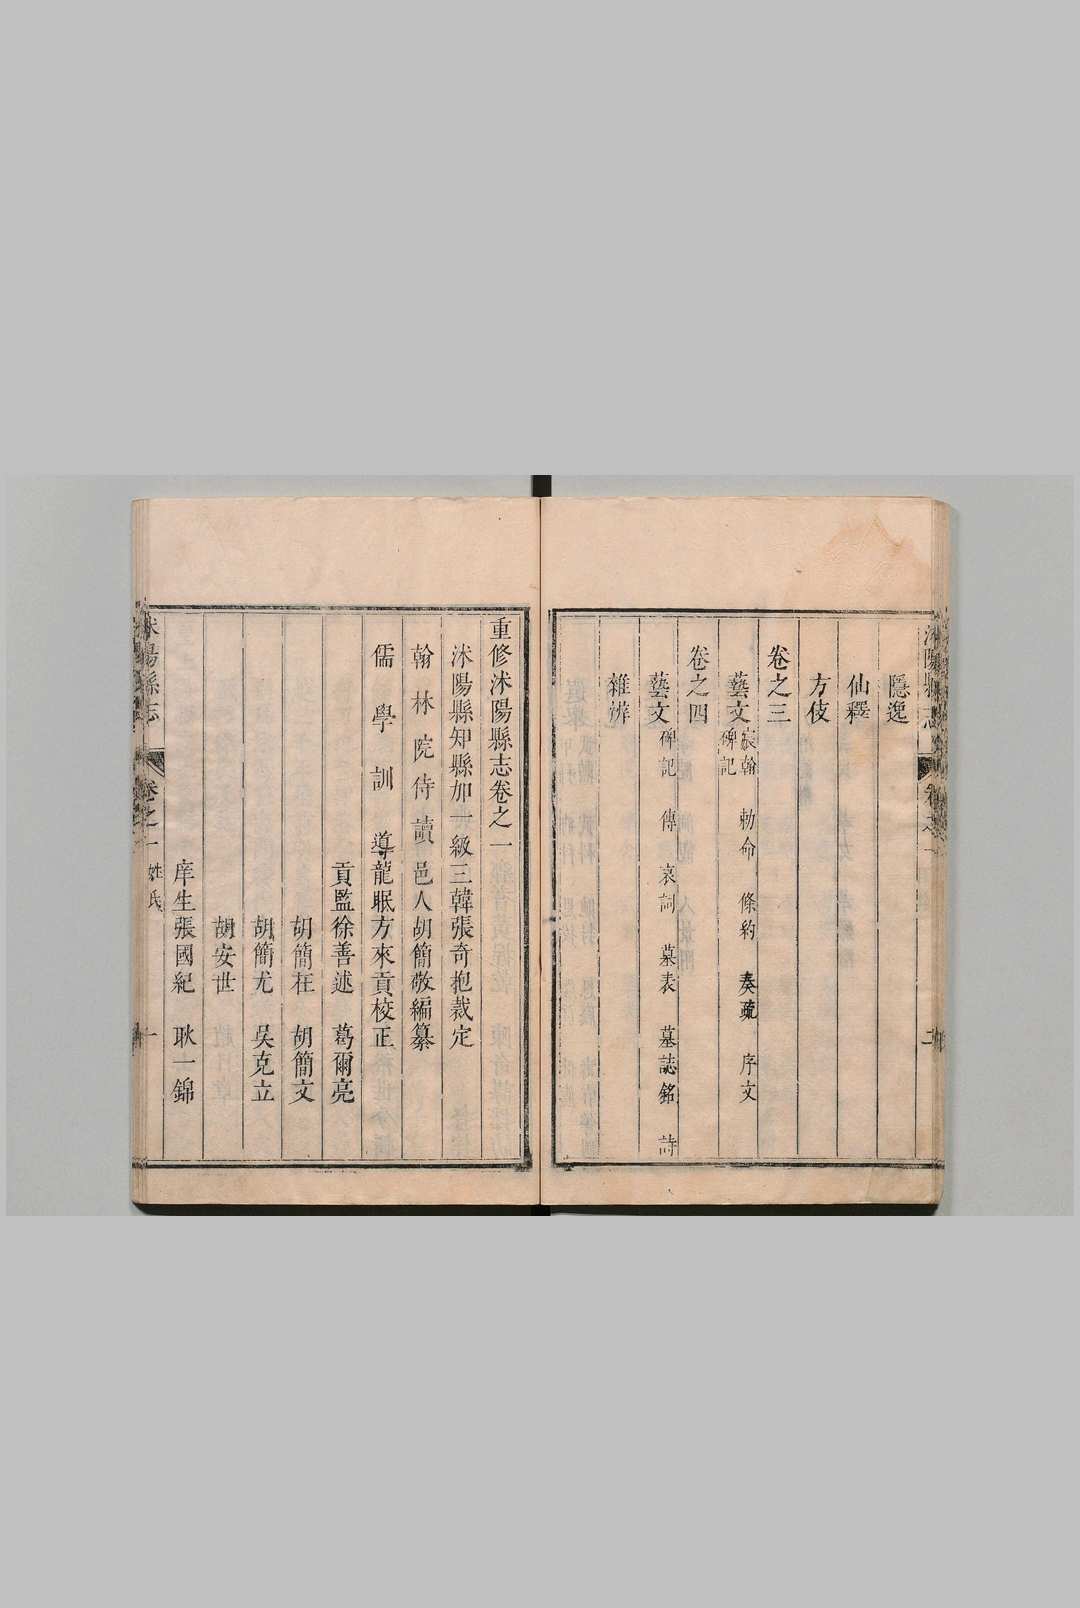 隱逸
仙釋
方伎
卷之三
藝文 宸翰 勅命 條約 奏疏 序文
碑記
卷之四
藝文 碑記 傳 哀詞 墓表 墓誌銘 詩
雜辨
重修沭陽縣志卷之一
沭陽縣知縣加一級三韓張奇抱裁定
翰林院侍讀邑人胡簡敬編纂
儒學訓導龍眠方來貢校正
貢監徐善述 葛爾亮
胡簡在 胡簡文
胡簡尤 吳克立
胡安世
庠生張國紀 耿一錦
沭陽縣志 卷之一 姓氏 一